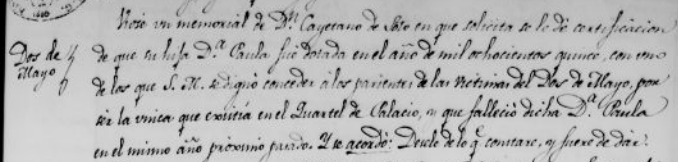 Viose un memorial de Dn. Cayetano de Soto en que solicita se le dé certificacion
Dos de Mayo
de que su hija D.a Paula fue dotada en el año de mil ochocientos quince, con uno
de los que S. M. se dignó conceder á los parientes de las victimas del Dos de Mayo, por
ser la unica que existia en el Quartel de Palacio, y que falleció dicha D.a Paula
en el mismo año próximo pasado. Y se acordó: Desele de lo q.e constare, y fuere de dar.